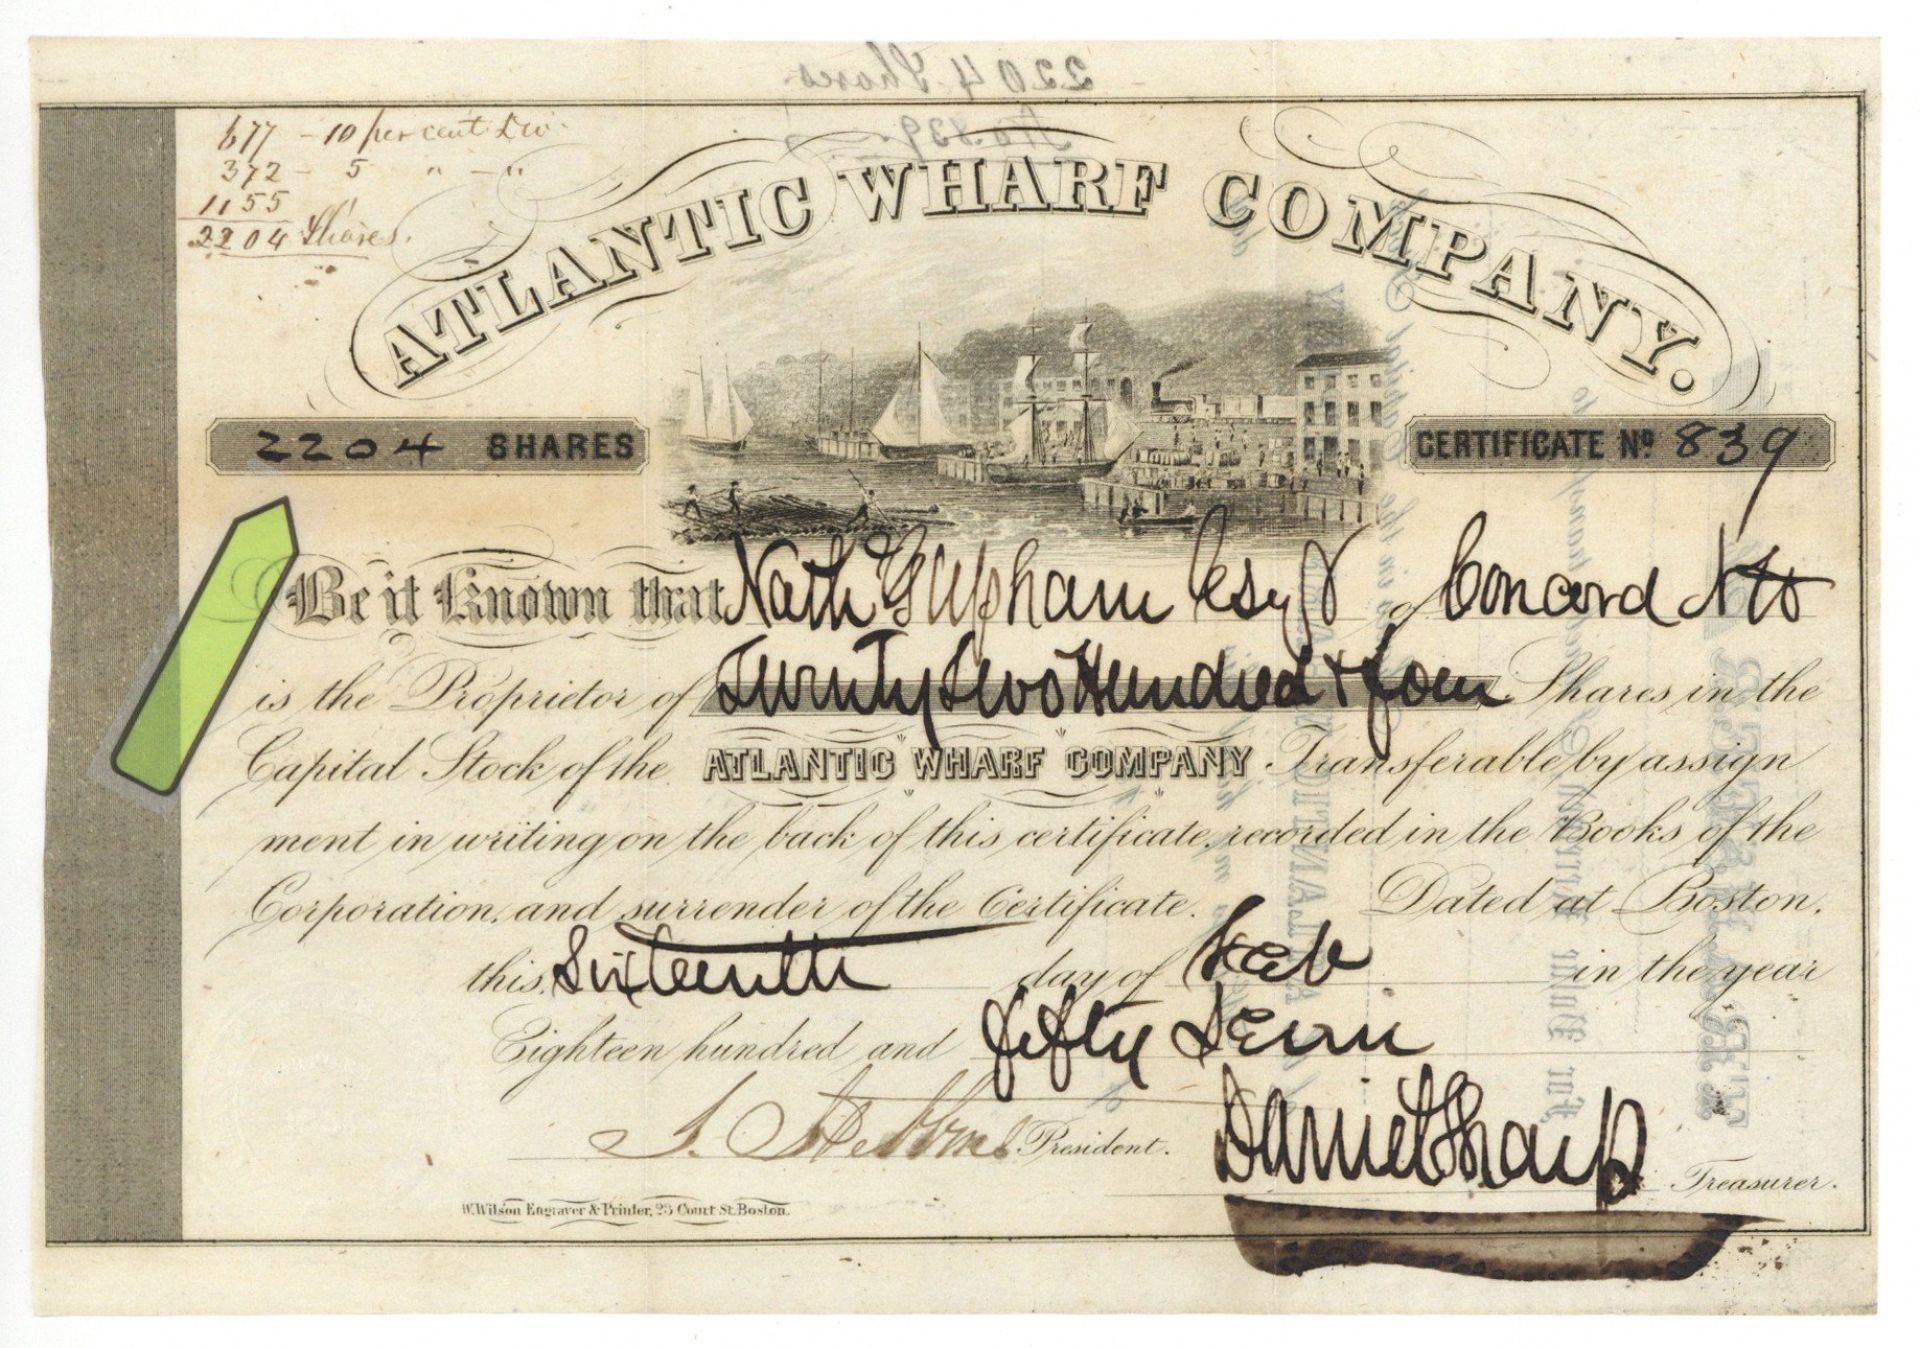 677 - 10 per cent Div.
372 - 5 " - "
1155
2204 Shares.
2204 Shares
No. 839
ATLANTIC WHARF COMPANY.
2204 SHARES
CERTIFICATE No. 839
Be it Known that Nath G Upham Esqr of Concord NH
is the Proprietor of Twenty Two Hundred & four Shares in the
Capital Stock of the ATLANTIC WHARF COMPANY Transferable by assign
ment in writing on the back of this certificate, recorded in the Books of the
Corporation, and surrender of the Certificate. Dated at Boston.
this Sixteenth day of Feb in the year
Eighteen hundred and fifty Seven
President.
Daniel Sharp Treasurer.
W. Wilson Engraver & Printer, 25 Court St. Boston.